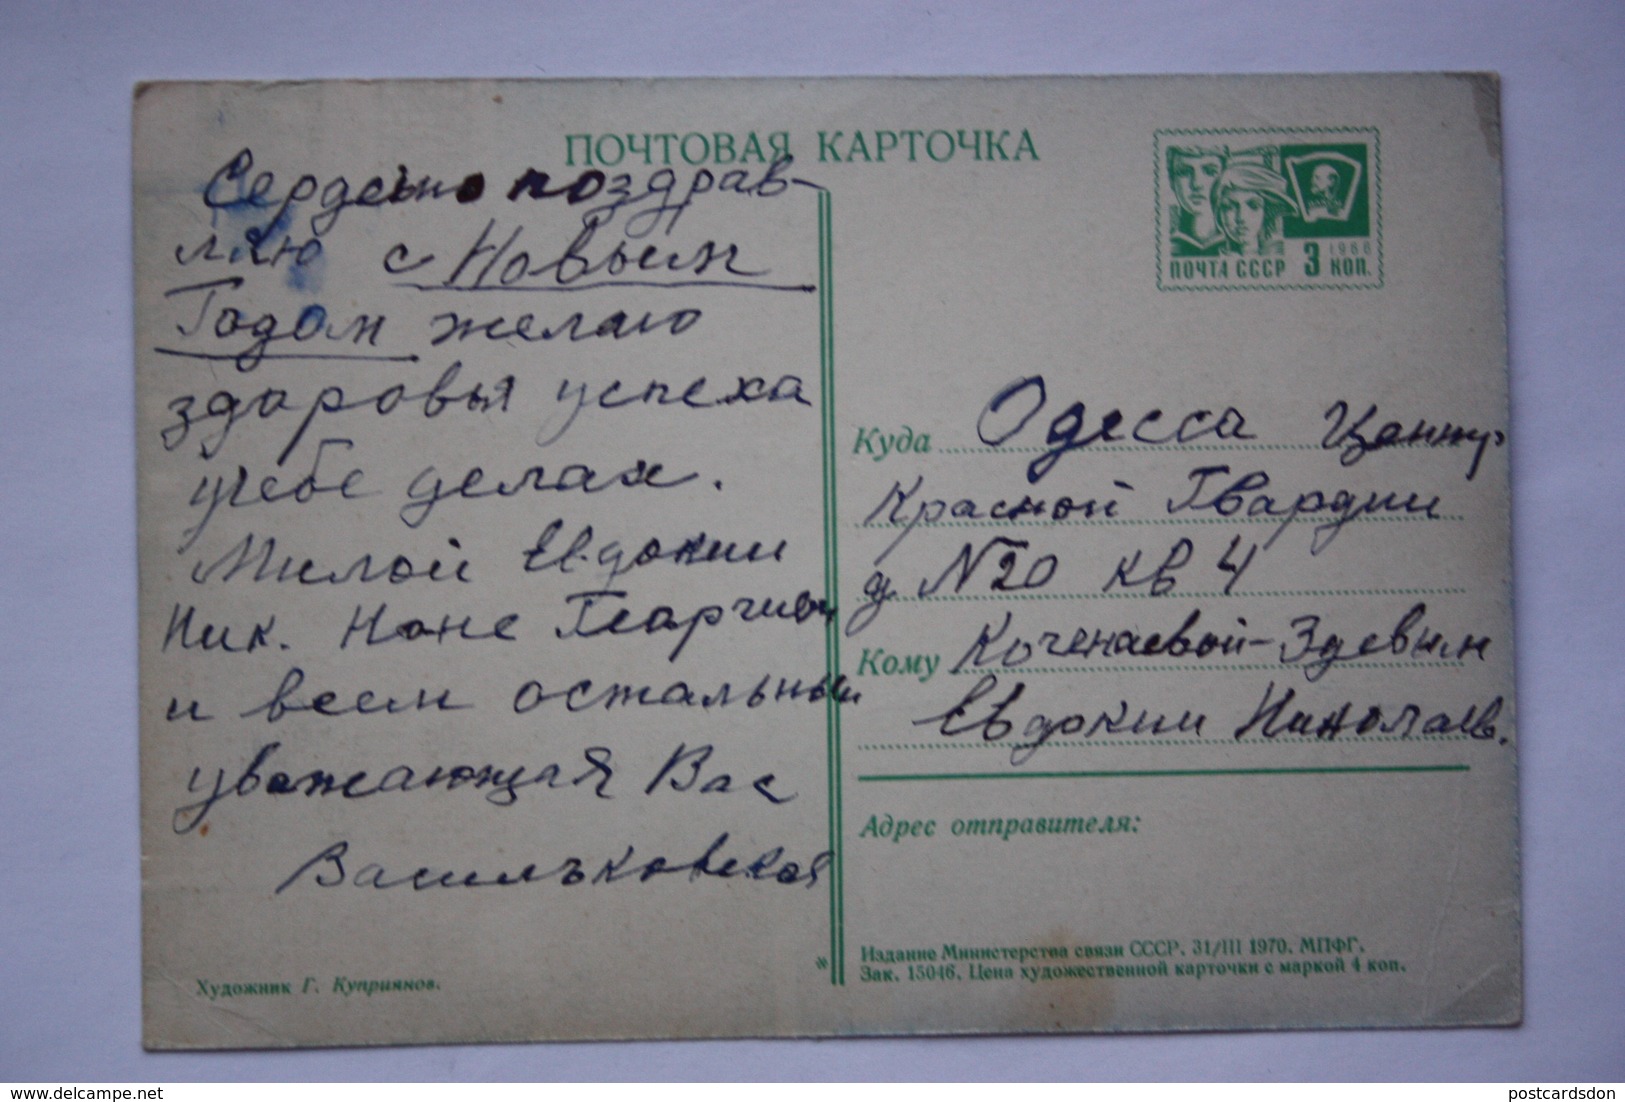 ПОЧТОВАЯ КАРТОЧКА
Сердечно поздрав-
ляю с Новым
Годом желаю
здоровья успеха
учебе делах.
Милой Евдокии
Ник.Ноне Георгиевн
и всем остальным
уважающая Вас
Васильковская
Художник Г. Куприянов.
1966
ПОЧТА СССР 3 КОП.
Куда Одесса Центр,
Красной Гвардии
д N20 кв 4
Кому Коченаевой-Здевым
Евдокии Николаев.
Адрес отправителя:
Издание Министерства связи СССР. 31/III 1970. МПФГ.
Зак. 15046. Цена художественной карточки с маркой 4 коп.
*
postcardsdon